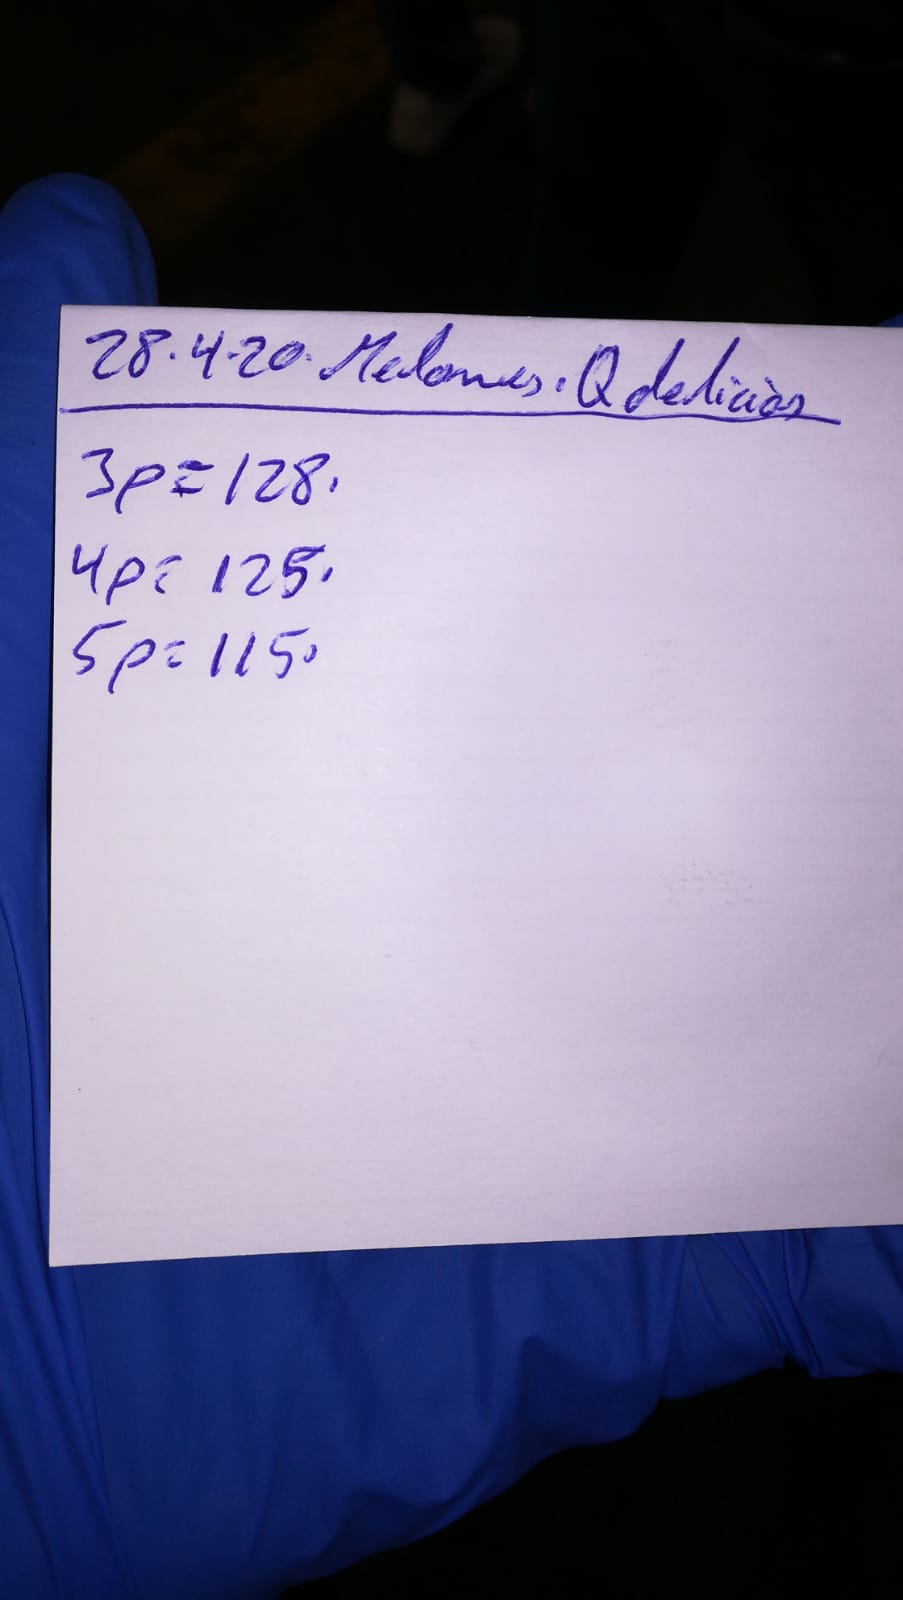 28.4.20. Melones. Q delicias
3p= 128.
4p= 125.
5p= 115.